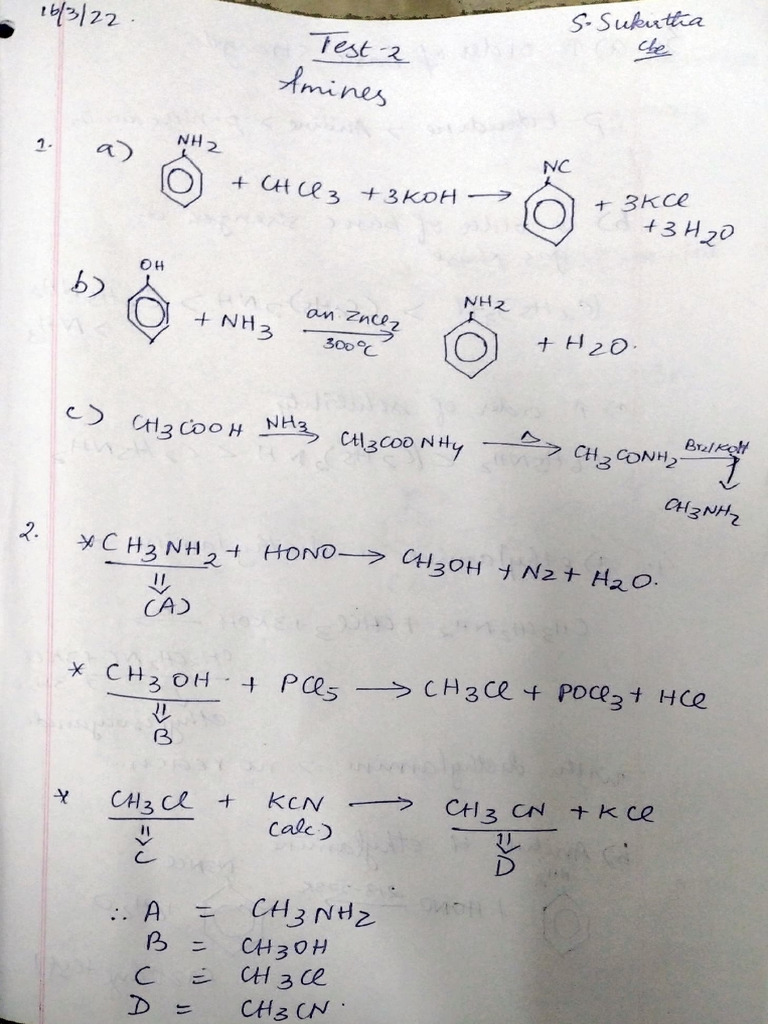 16/3/22.
S. Sukirtha
Cbe
Test-2
Amines
1. a) NH2 + CHCl3 + 3KOH → NC + 3KCl
+ 3H2O
b) OH + NH3 an ZnCl2 → 300°C NH2 + H2O.
c) CH3COOH NH3 → CH3COONH4 Δ → CH3CONH2 Br2/KOH →
CH3NH2
2. * CH3NH2 + HONO → CH3OH + N2 + H2O.
⇓
(A)
* CH3OH + PCl5 → CH3Cl + POCl3 + HCl
⇓
B
* CH3Cl + KCN (alc) → CH3CN + KCl
⇓ ⇓
C D
∴ A = CH3NH2
B = CH3OH
C = CH3Cl
D = CH3CN.